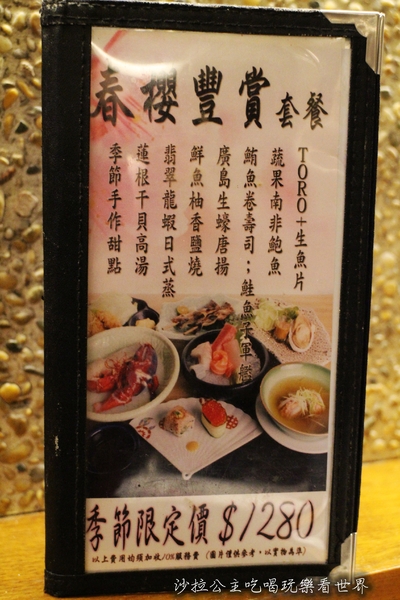 春櫻豐賞套餐
TORO+生魚片
蔬果南非鮑魚
鮪魚卷壽司；鮭魚子軍艦
廣島生蠔唐揚
鮮魚柚香鹽燒
翡翠龍蝦日式蒸
蓮根干貝高湯
季節手作甜點
季節限定價$1280
以上費用均須加收10%服務費 (圖片僅供參考，以實物為準)
沙拉公主吃喝玩樂看世界